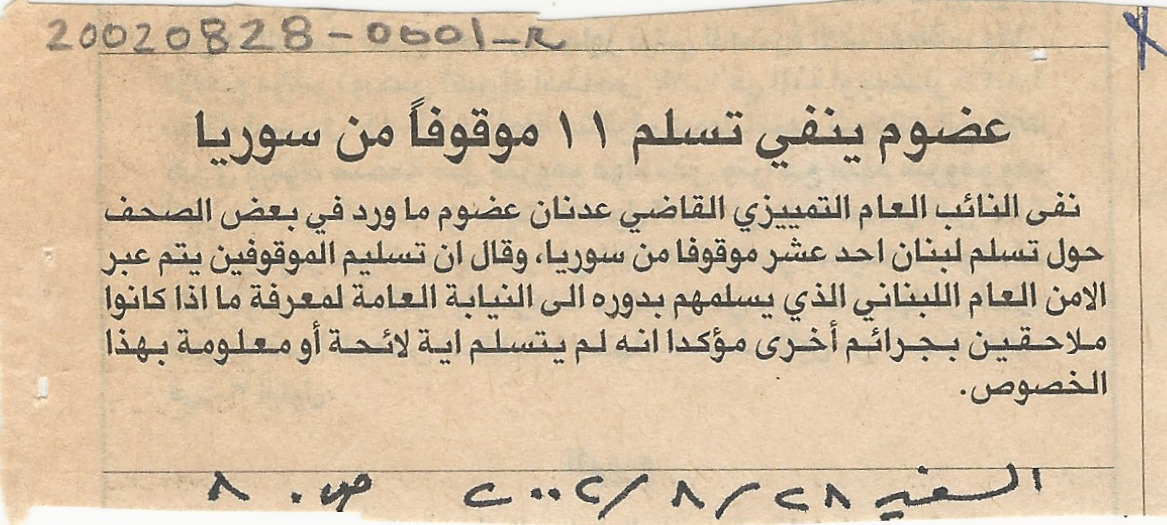 20020828-0001-R
عضوم ينفي تسلم ١١ موقوفاً من سوريا
نفى النائب العام التمييزي القاضي عدنان عضوم ما ورد في بعض الصحف
حول تسلم لبنان احد عشر موقوفا من سوريا، وقال ان تسليم الموقوفين يتم عبر
الامن العام اللبناني الذي يسلمهم بدوره الى النيابة العامة لمعرفة ما اذا كانوا
ملاحقين بجرائم أخرى مؤكدا انه لم يتسلم اية لائحة أو معلومة بهذا
الخصوص.
السفير ٢٨/٨/٢٠٠٢ ص. ٨